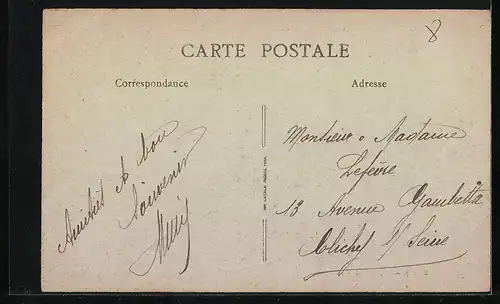 8
CARTE POSTALE
Correspondance
Adresse
Amitiés & bon
Souvenir
Monsieur & Madame
Lefèvre
13 Avenue Gambetta
Clichy s/ Seine